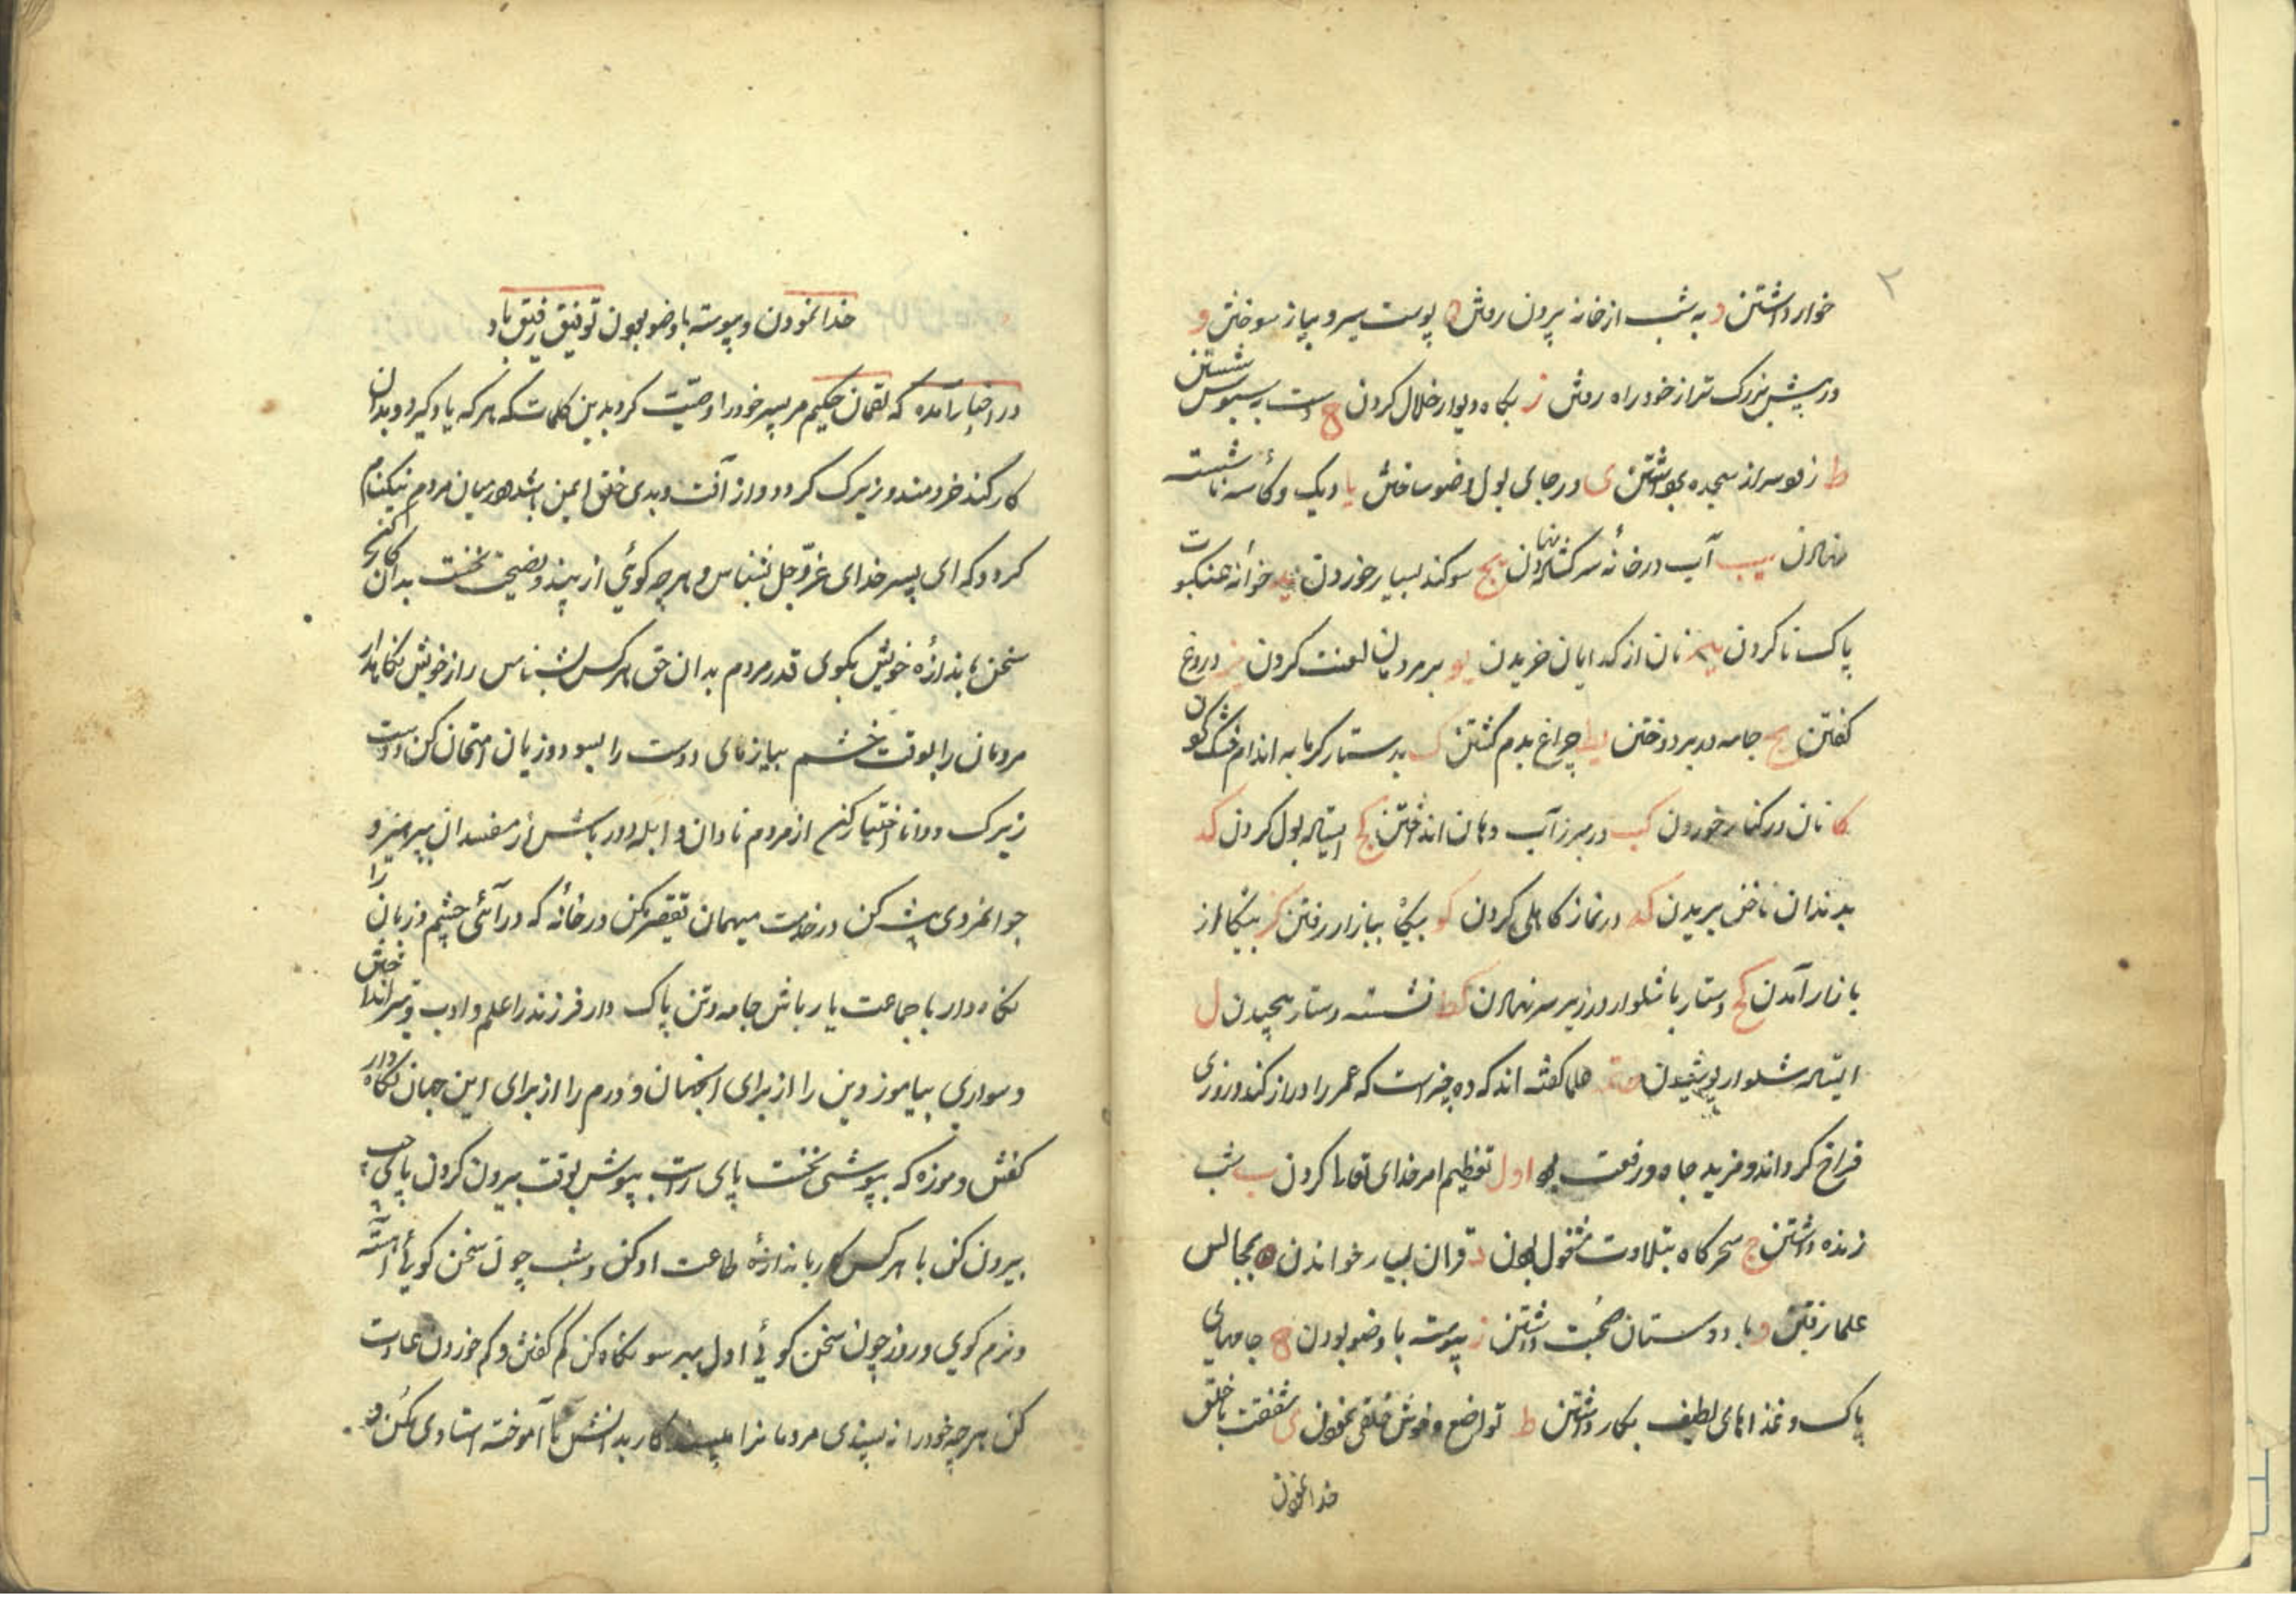 ۲
خوار داشتن د به شب از خانه برون روفتن ه پوست سیر و پیاز سوختن و
در پیش بزرک تر از خود راه رفتن ز بکاه دیوار خلال کردن ح دست به سبوس شستن
ط زفو سر از سجده بمواشتن ی در جای بول وضو ساختن یا دیک و کاسه ناشسته
نهادن یب آب در خانهٔ سرکشاده نهادن یج سوکند بسیار خوردن ید خوانه عنکبوت
پاک ناکردن یه نان از کدایان خریدن یو بر مردمان لعنت کردن یز دروغ
کفتن یح جامه در بر دوختن یط چراغ بدم کشتن ک بدستار کرمابه اندام خشک کردن
کا نان در کنار خوردن کب در مبرز آب دهان انداختن کج ایستاده بول کردن کد
بدندان ناخن بریدن که در نماز کاهلی کردن کو پیکاه ببازار رفتن کز بیکاه از
بازار آمدن کح دستار یا شلوار در زیر سر نهادن کط نشسته دستار پیچیدن ل
ایستاده شلوار پوشیدن حکما کفته اند که ده چیز است که عمر را دراز کند و روزی
فراخ کرداند و مزید جاه و رفعت بود اول تعظیم امر خدای تعالی کردن ب شب
زنده داشتن ج سحرکاه بتلاوت مشغول بودن د قران بسیار خواندن ه بمجالس
علما رفتن و با دوستان صحبت داشتن ز پیوسته با وضو بودن ح جامهای
پاک و غذاهای لطیف بکار داشتن ط تواضع و خوش خلقی نمودن ی شفقت با خلق
خدا نمودن
خدا نمودن و پیوسته با وضو بودن توفیق رفیق باد
در اخبار آمده که لقمان حکیم مر پسر خود را وصیّت کرد بدین کلمات که هر که یاد کیرد و بدان
کار کند خردمند و زیرک کردد و از آفت و بدی خلق ایمن باشد و در میان مردم نیکنام
کردد که ای پسر خدای عزّ و جل بشناس و هر چه کوئی از پند و نصیحت نخست بدان کار کن
سخن باندازهٔ خویش بکوی قدر مردم بدان حق هر کس بشناس راز خویش نکاهدار
مردمان را بوقت خشم بیازمای دوست را بسود و زیان امتحان کن دوست
زیرک و دانا اختیار کن از مردم نادان و ابله دور باش از مفسدان بپرهیز و
جوانمردی پیشه کن در خدمت میهمان تقصیر مکن در خانهٔ که در آئی چشم و زبان را
نکاه دار با جماعت یار باش جامه و تن پاک دار فرزند را علم و ادب و تیر انداختن
و سواری بیاموز دین را از برای آنجهان و درم را از برای این جهان نکاه دار
کفش و موزه که بپوشی نخست پای راست بپوش بوقت بیرون کردن پای چپ
بیرون کن با هر کس کار باندازهٔ طاعت او کن و شب چون سخن کوئی آهسته
و نرم کوی و روز چون سخن کوئی اول هر سو نکاه کن کم کفتن و کم خوردن عادت
کن هر چه خود را نه پسندی مردمانرا مپسند کار بدانش کن نا آموخته استادی مکن و